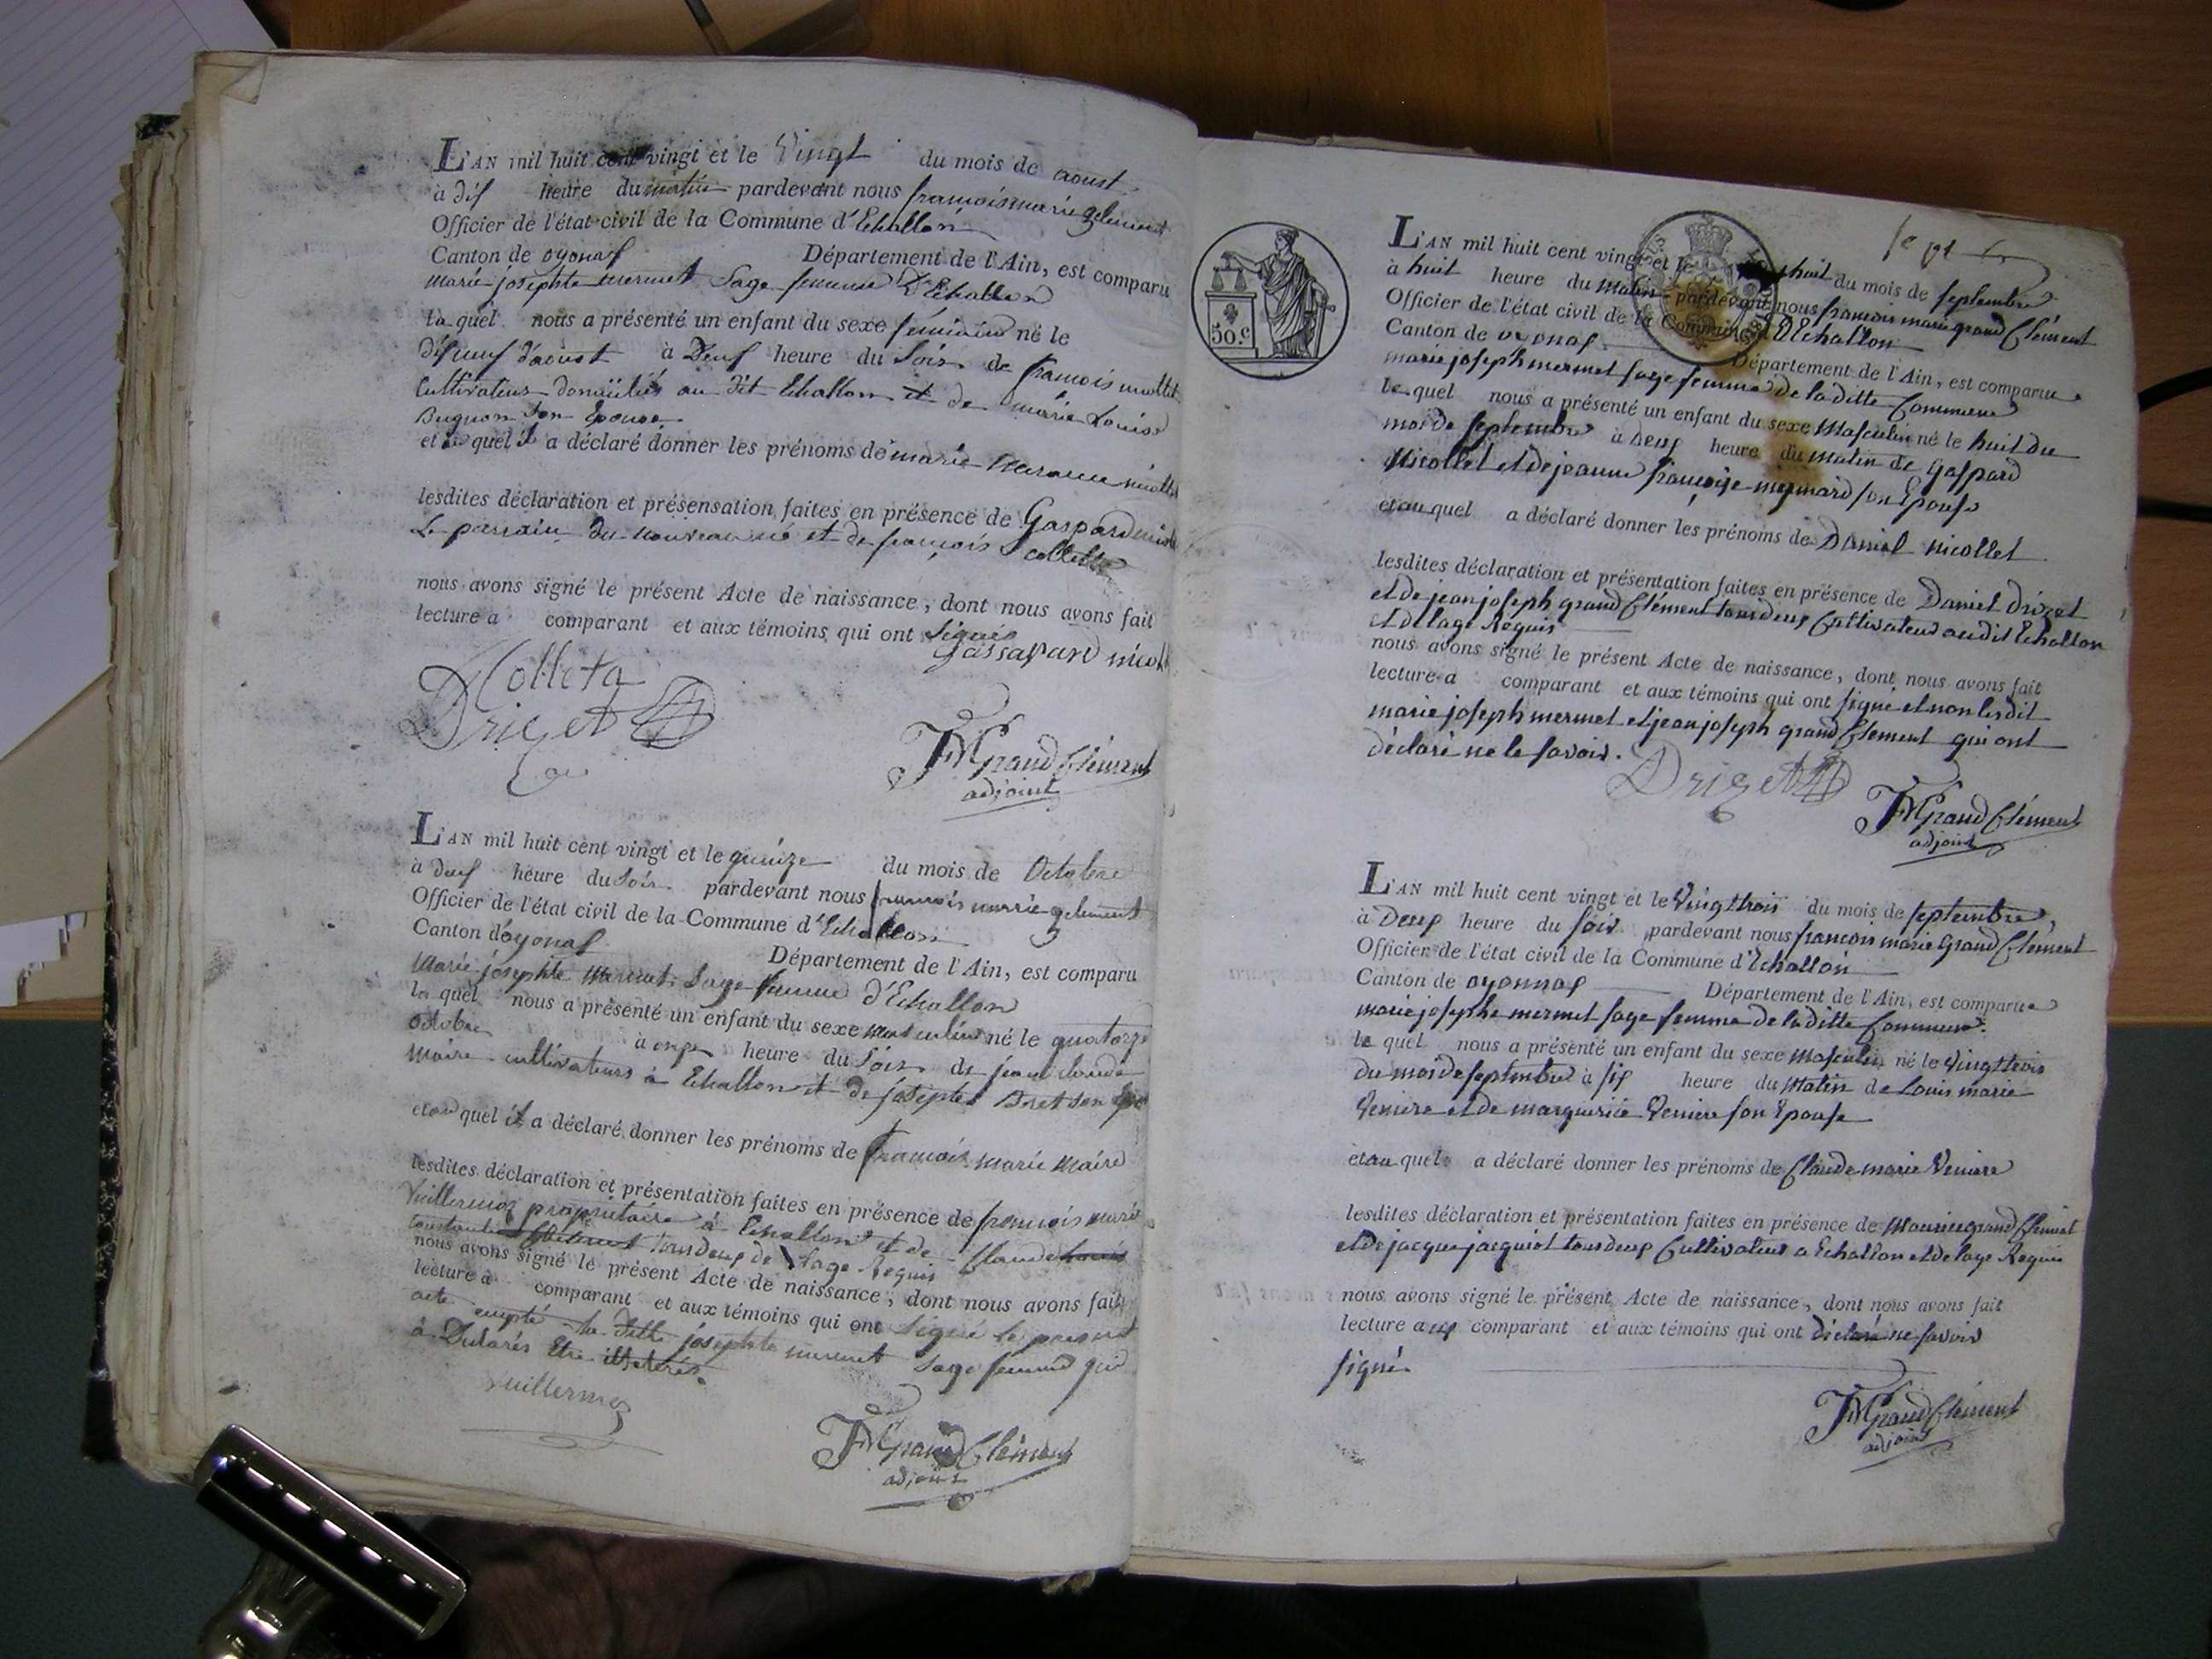 L'AN mil huit cent vingt et le Vingt du mois de aoust
à dis heure du matin pardevant nous francois marie gclement
Officier de l'état civil de la Commune d'Echallon
Canton de oyonas Département de l'Ain, est comparu
marie josephte mermet Sage femme D'Echallon
la quel nous a présenté un enfant du sexe féminin né le
disneuf d'aoust à Deus heure du Soir de francois nicollet
Cultivateurs domiciliés au dit Echallon et de marie Louise
Buguon son Epouse
et au quel il a déclaré donner les prénoms de marie nicollet
lesdites déclaration et présensation faites en présence de Gaspard nicollet
Le parrain du nouveau né et de francois collette
nous avons signé le présent Acte de naissance, dont nous avons fait
lecture a comparant et aux témoins qui ont Signés
Gassapard nicoll
Colleta
Drizet
FMGrand Clément
adjoint
L'AN mil huit cent vingt et le quinze du mois de Octobre
à deus heure du Soir pardevant nous francois marie gclement
Officier de l'état civil de la Commune d'Echallon
Canton d'oyonas Département de l'Ain, est comparu
Marie josephte Mermet Sage femme d'Echallon
la quel nous a présenté un enfant du sexe masculin né le quatorze
octobre à onze heure du Soir de jean claude
Maire cultivateurs à Echallon et de josephte Dret son epo
et au quel il a déclaré donner les prénoms de francois Marie Maire
lesdites déclaration et présentation faites en présence de francois marie
Vuillermoz propriétaire à Echallon et de Claude
tous deus de l'age Requis
nous avons signé le présent Acte de naissance, dont nous avons fait
lecture a comparant et aux témoins qui ont Signé le present
acte eccepté la ditte josephte mermet sage femme qui
à Déclarés Etre illeterés.
Vuillermoz
FMGrand Clément
adjoint
sept 6
L'AN mil huit cent vingt et le huit du mois de septembre
à huit heure du Matin pardevant nous francois marie grand Clément
Officier de l'état civil de la Commune d'Echallon
Canton de oyonas Département de l'Ain, est comparue
marie joseph mermet sage femme de la ditte Commune
le quel nous a présenté un enfant du sexe Masculin né le huit du
moi de septembre à Deus heure du matin de Gaspard
Nicollet et de jeanne françoise meynard son Epouse
et au quel a déclaré donner les prénoms de Daniel nicollet
lesdites déclaration et présentation faites en présence de Daniel Drizet
et de jean joseph grand Clément tous deus Cultivateur au dit Echallon
et de lage Requis
nous avons signé le présent Acte de naissance, dont nous avons fait
lecture a comparant et aux témoins qui ont signé et non les dit
marie joseph mermet et jean joseph grand Clement qui ont
déclaré ne le savoir.
Drizet
FMGrand Clément
adjoint
L'AN mil huit cent vingt et le Vingt trois du mois de septembre
à Deus heure du soir pardevant nous francois marie Grand Clément
Officier de l'état civil de la Commune d'Echallon
Canton de oyonnas Département de l'Ain, est comparue
marie josephe mermet sage femme de la ditte Commune.
la quel nous a présenté un enfant du sexe masculin né le Vingt trois
du moi de septembre à sis heure du Matin de Louis marie
Veniere et de marguerite Veniere son Epouse
et au quel a déclaré donner les prénoms de Claude marie Veniere
lesdites déclaration et présentation faites en présence de Maurice grand Clement
et de jacque jacquiot tous deus Cultivateur a Echallon et de lage Requis
nous avons signé le présent Acte de naissance, dont nous avons fait
lecture aus comparant et aux témoins qui ont déclaré ne savoir
signé.
FMGrand Clément
adjoint
50.c